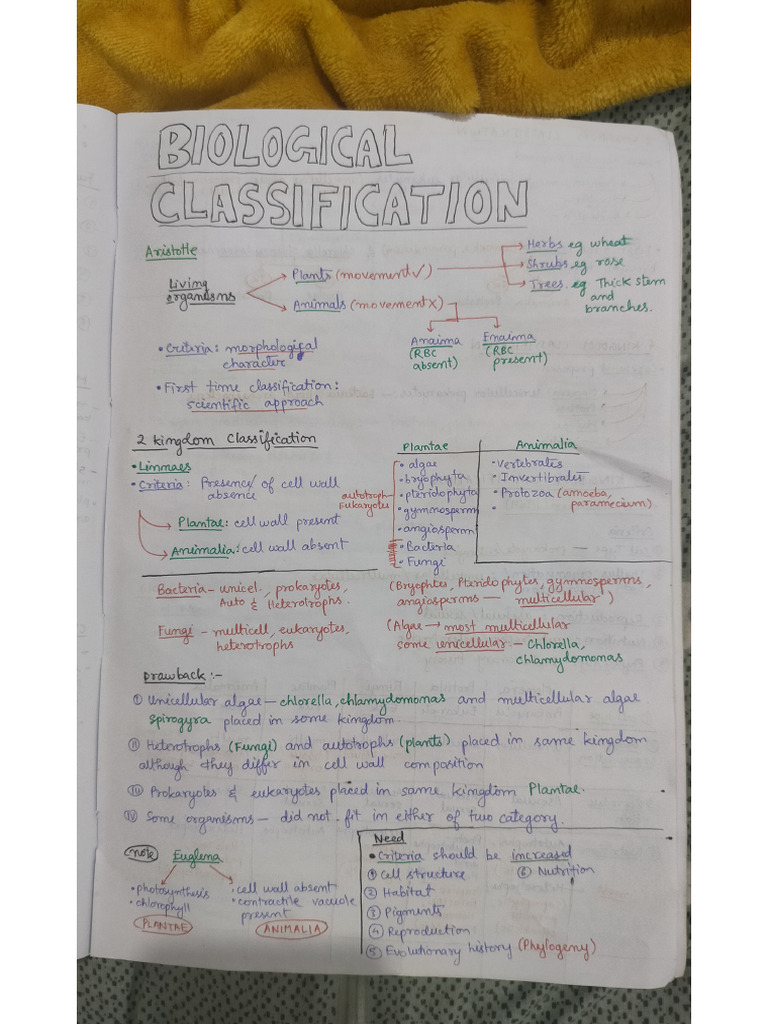 BIOLOGICAL
CLASSIFICATION
Aristotle
Living organisms
Plants (movement✓)
Herbs eg wheat
Shrubs eg rose
Trees eg Thick stem
and
branches.
Animals (movement×)
Anaima
(RBC
absent)
Enaima
(RBC
present)
• Criteria: morphological
character
• First time classification:
scientific approach
2 kingdom Classification
• Linnaes
• Criteria: Presence/ of cell wall
absence
Plantae: cell wall present
Animalia: cell wall absent
Plantae
Animalia
autotroph
Eukaryotes
• algae
• bryophyta
• pteridophyta
• gymnosperm
• angiosperm
• Bacteria
• Fungi
• vertebrates
• Invertibrates
• Protozoa (amoeba,
paramecium)
•
Bacteria – unicel., prokaryotes,
Auto & Heterotrophs.
Fungi – multicell, eukaryotes,
heterotrophs
(Bryophtes, Pteridophytes, gymnosperms,
angiosperms — multicellular)
(Algae → most multicellular
some unicellular – Chlorella,
chlamydomonas
Drawback :-
① Unicellular algae – chlorella, chlamydomonas and multicellular algae
Spirogyra placed in some kingdom.
⑪ Heterotrophs (Fungi) and autotrophs (plants) placed in same kingdom
although they differ in cell wall composition
Prokaryotes & eukaryotes placed in same kingdom Plantae.
Some organisms – did not fit in either of two category.
note
Euglena
• photosynthesis
• chlorophyll
PLANTAE
• cell wall absent
• contractile vacuole
present
ANIMALIA
Need
• Criteria should be increased
① Cell structure
⑥ Nutrition
② Habitat
③ Pigments
④ Reproduction
⑤ Evolutionary history (Phylogeny)